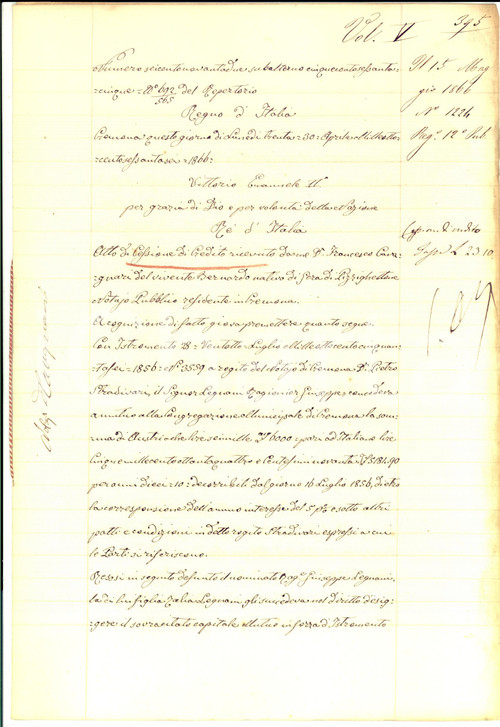 Vol. V 395
Numero seicentonovantadue subalterno cinquecentosessanta=
cinque = N° 692/565 del Repertorio
Regno d'Italia
Cremona questo giorno di Lunedì trenta = 30 = Aprile Mille otto=
centosessantasei = 1866 =
Vittorio Emanuele II.
per grazia di Dio e per volontà della Nazione
Re d'Italia
Atto di Cessione di Credito ricevuto da me Dr. Francesco
del vivente Bernardo nativo di Gera di Pizzighettone
Notajo Pubblico residente in Cremona.
A cognizione di fatto, giova premettere quanto segue.
Con Istromento 28 = Ventotto Luglio Mille ottocento cinquan=
tasei = 1856 = N° 3559 a rogito del Notajo di Cremona Dr. Pietro
Stradivari, il Signor Legnani Ragionier Giuseppe concedeva
a mutuo alla Congregazione Municipale di Cremona la som=
ma di Austriache lire seimille 6000 = pari ad Italiane lire
cinquemillecentoottantaquattro e Centesimi novanta 5184.90
per anni dieci = 10 = decorribili dal giorno 16 Luglio 1856, dietro
la corresponsione dell'annuo interesse del 5 p% e sotto altri
patti e condizioni in detto rogito Stradivari espressi a cui
le Parti si riferiscono.
Resosi in seguito defunto il nominato Rag. Giuseppe Legnani,
la di lui figlia Legnani gli succedeva nel diritto d'esig=
gere il sovracitato capitale Mutuo in forza d'Istromento
Il 15 Mag
gio 1866
N° 1224
Reg. 12° Pub
Cession. di credito
Tassa L 23.10